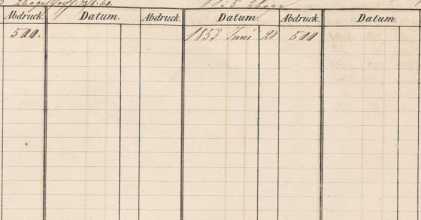 Abdruck. Datum. Abdruck. Datum. Abdruck. Datum.
500. 1853 Juni 20 500